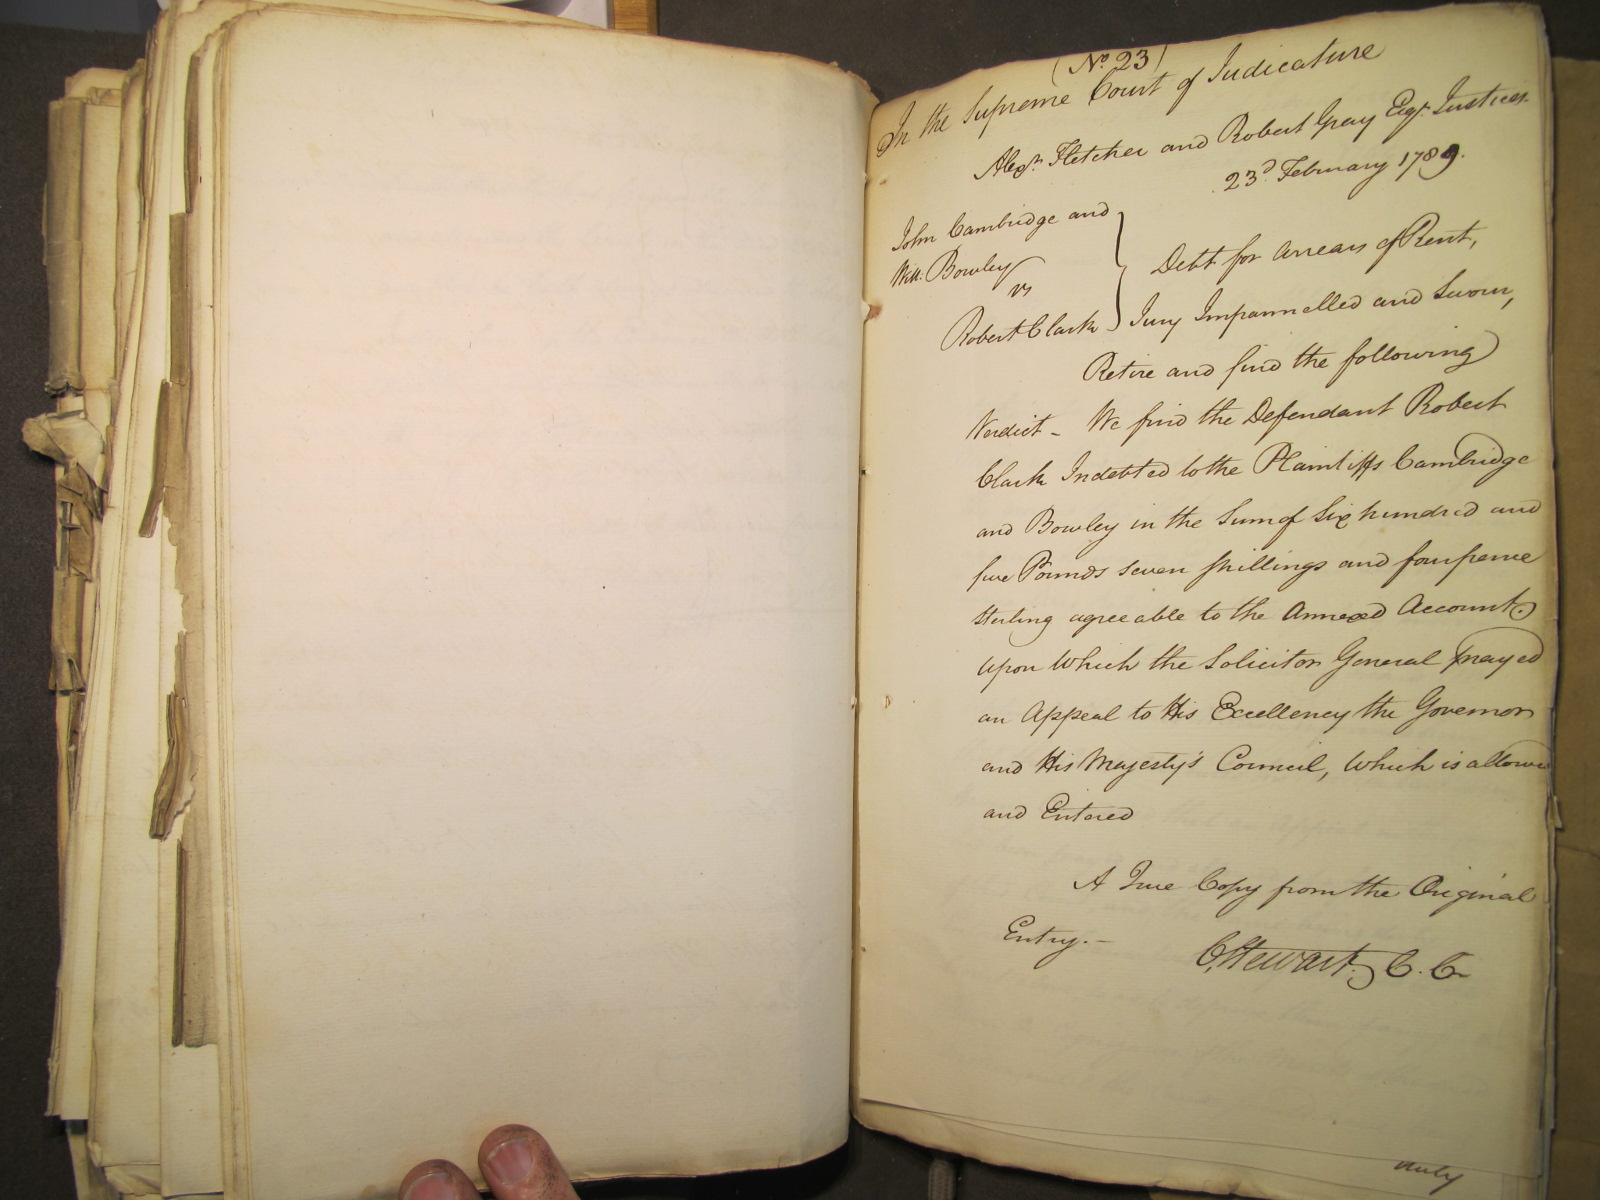 (No. 23)
In the Supreme Court of Judicature
Alexr. Fletcher and Robert Gray Esqr. Justices
23d. February 1789.
John Cambridge and
Will. Bowley
vs
Robert Clark
Debt for arrears of Rent,
Jury Impannelled and Sworn,
Retire and find the following
Verdict - We find the Defendant Robert
Clark Indebted to the Plaintiffs Cambridge
and Bowley in the Sum of Six hundred and
five Pounds seven shillings and fourpence
sterling agreeable to the Annexed Account.
upon Which the Solicitor General prayed
an Appeal to His Excellency the Governor
and His Majesty's Council, Which is allowed
and Entered
A True Copy from the Original
Entry. -
C Stewart, C. C.